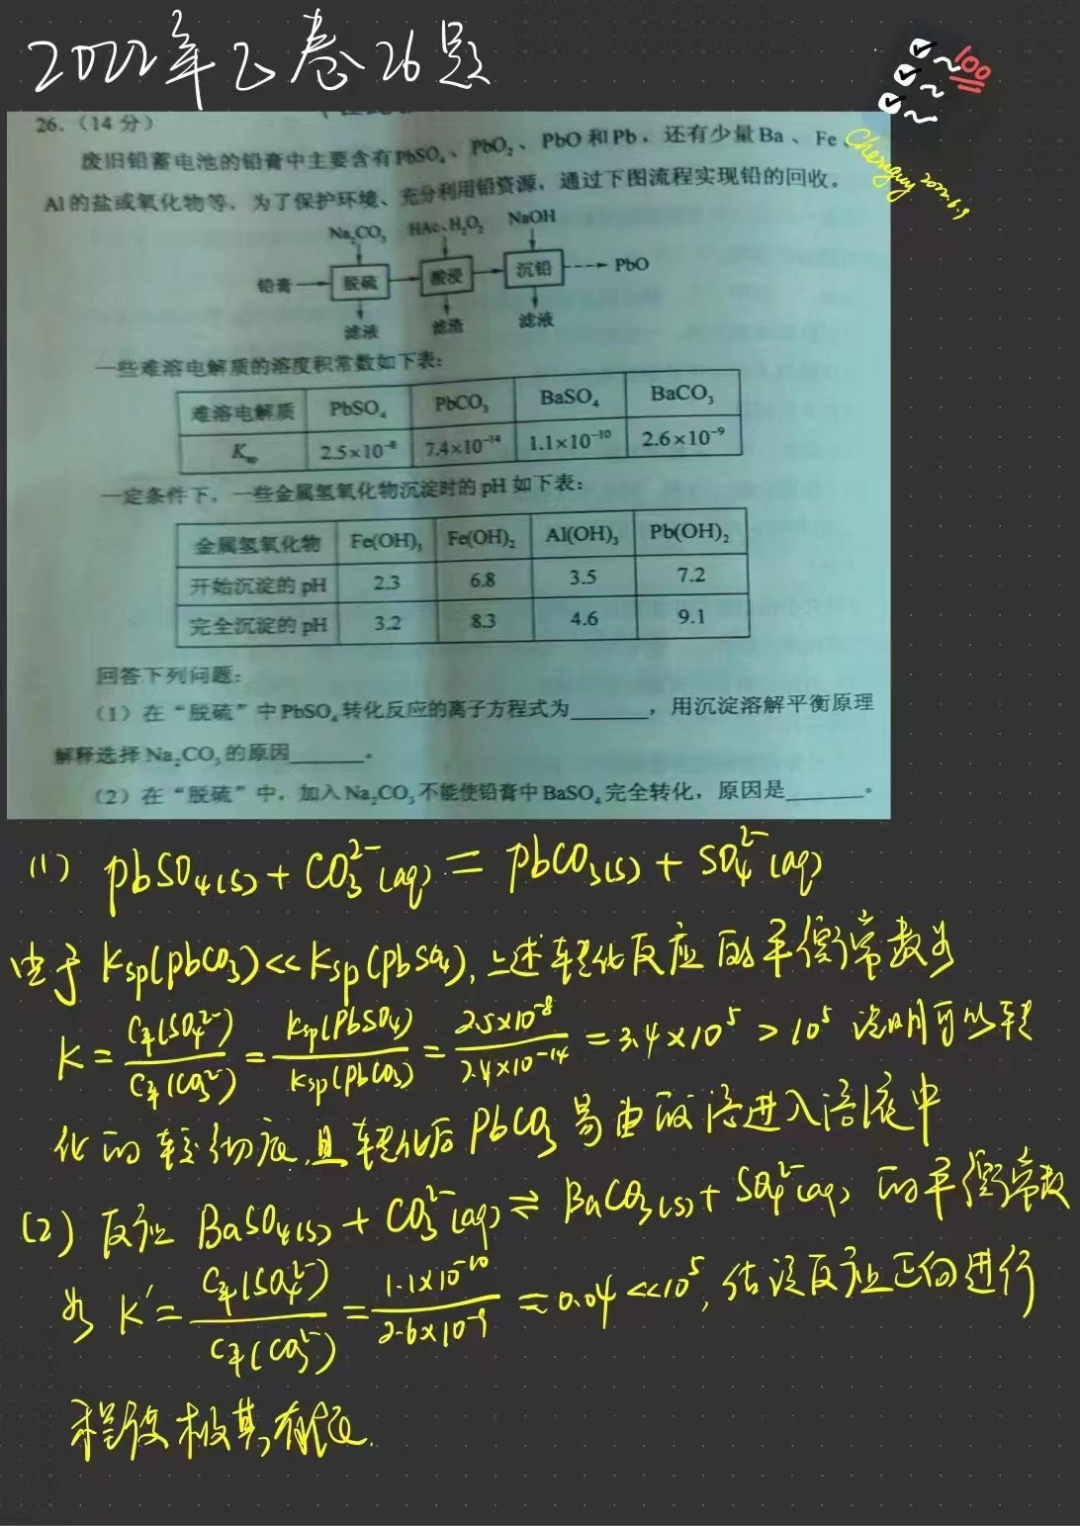 2022年乙卷26题
100
Chenguy 2022.6.9
26.（14分）
废旧铅蓄电池的铅膏中主要含有PbSO₄、PbO₂、PbO和Pb，还有少量Ba、Fe
Al的盐或氧化物等，为了保护环境、充分利用铅资源，通过下图流程实现铅的回收。
Na₂CO₃ HAc、H₂O₂ NaOH
铅膏 脱硫 酸浸 沉铅 PbO
滤液 滤渣 滤液
一些难溶电解质的溶度积常数如下表：
难溶电解质 PbSO₄ PbCO₃ BaSO₄ BaCO₃
Ksp 2.5×10⁻⁸ 7.4×10⁻¹⁴ 1.1×10⁻¹⁰ 2.6×10⁻⁹
一定条件下，一些金属氢氧化物沉淀时的pH如下表：
金属氢氧化物 Fe(OH)₃ Fe(OH)₂ Al(OH)₃ Pb(OH)₂
开始沉淀的pH 2.3 6.8 3.5 7.2
完全沉淀的pH 3.2 8.3 4.6 9.1
回答下列问题：
（1）在“脱硫”中PbSO₄转化反应的离子方程式为______，用沉淀溶解平衡原理
解释选择Na₂CO₃的原因______。
（2）在“脱硫”中，加入Na₂CO₃不能使铅膏中BaSO₄完全转化，原因是______。
(1) PbSO₄(s) + CO₃²⁻(aq) = PbCO₃(s) + SO₄²⁻(aq)
由于Ksp(PbCO₃)<<Ksp(PbSO₄),上述转化反应的平衡常数为
K = c平(SO₄²⁻)/c平(CO₃²⁻) = Ksp(PbSO₄)/Ksp(PbCO₃) = 2.5×10⁻⁸/7.4×10⁻¹⁴ = 3.4×10⁵ > 10⁵ 说明可以转
化的较彻底,且转化后PbCO₃易由酸溶进入溶液中
(2) 反应 BaSO₄(s) + CO₃²⁻(aq) ⇌ BaCO₃(s) + SO₄²⁻(aq) 的平衡常数
为 K′ = c平(SO₄²⁻)/c平(CO₃²⁻) = 1.1×10⁻¹⁰/2.6×10⁻⁹ = 0.04 <<10⁵, 估该反应正向进行
程度极其有限.